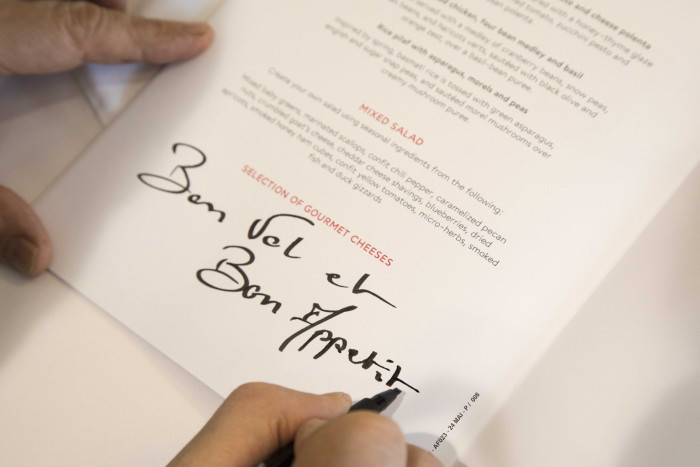 and cheese polenta
served with a honey-thyme glaze
tomato, zucchini pesto and
polenta
chicken, four bean medley and basil
served with a medley of cranberry beans, snow peas,
beans, and haricots verts, sautéed with black olive and
orange zest, over a basil-bean purée.
Rice pilaf with asparagus, morels and peas
Inspired by spring, basmati rice is tossed with green asparagus,
english and sugar snap peas, and sautéed morel mushrooms over
creamy mushroom purée.
MIXED SALAD
Create your own salad using seasonal ingredients from the following:
Mixed baby greens, marinated scallops, confit chili pepper, caramelized pecan
nuts, crumbled goat's cheese, cheddar cheese shavings, blueberries, dried
apricots, smoked honey ham cubes, confit yellow tomatoes, micro-herbs, smoked
fish and duck gizzards
SELECTION OF GOURMET CHEESES
Bon Vol et
Bon Appetit
AF023 - 24 MAI - P / 008